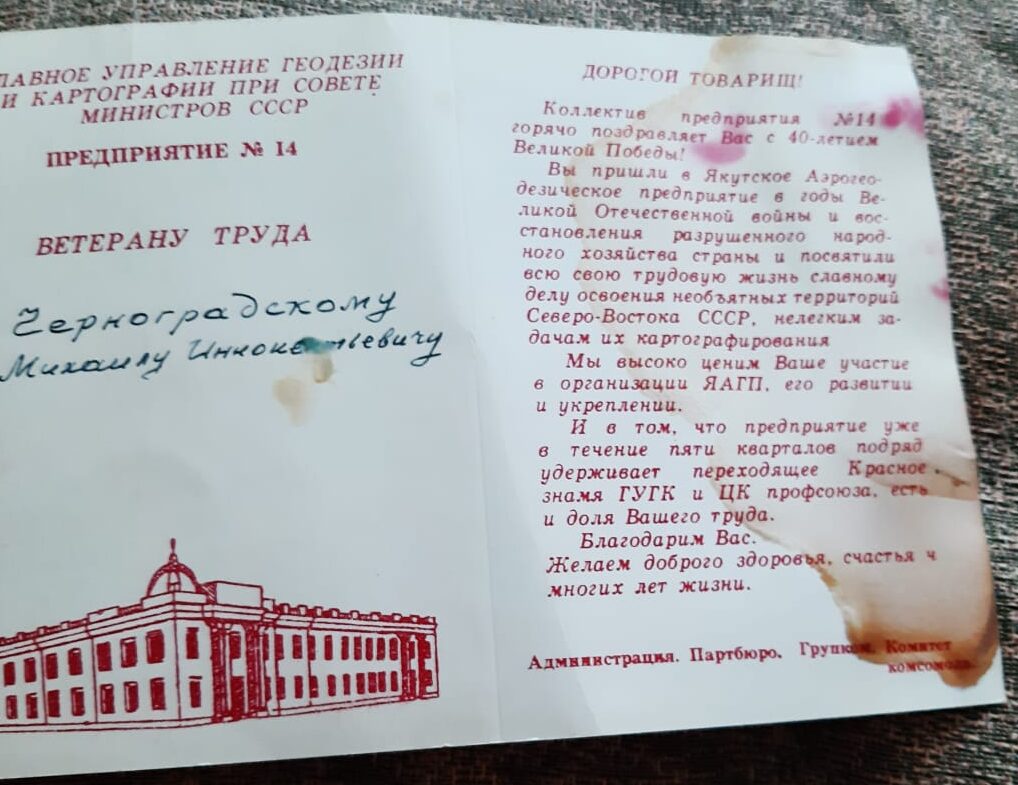 ЛАВНОЕ УПРАВЛЕНИЕ ГЕОДЕЗИИ
И КАРТОГРАФИИ ПРИ СОВЕТЕ
МИНИСТРОВ СССР
ПРЕДПРИЯТИЕ № 14
ВЕТЕРАНУ ТРУДА
Черноградскому
Михаилу Иннокентьевичу
ДОРОГОЙ ТОВАРИЩ!
Коллектив предприятия №14
горячо поздравляет Вас с 40-летием
Великой Победы!
Вы пришли в Якутское Аэрогео-
дезическое предприятие в годы Ве-
ликой Отечественной войны и вос-
становления разрушенного народ-
ного хозяйства страны и посвятили
всю свою трудовую жизнь славному
делу освоения необъятных территорий
Северо-Востока СССР, нелегким за-
дачам их картографирования
Мы высоко ценим Ваше участие
в организации ЯАГП, его развитии
и укреплении.
И в том, что предприятие уже
в течение пяти кварталов подряд
удерживает переходящее Красное
знамя ГУГК и ЦК профсоюза, есть
и доля Вашего труда.
Благодарим Вас.
Желаем доброго здоровья, счастья и
многих лет жизни.
Администрация. Партбюро. Групком. Комитет
комсомола.